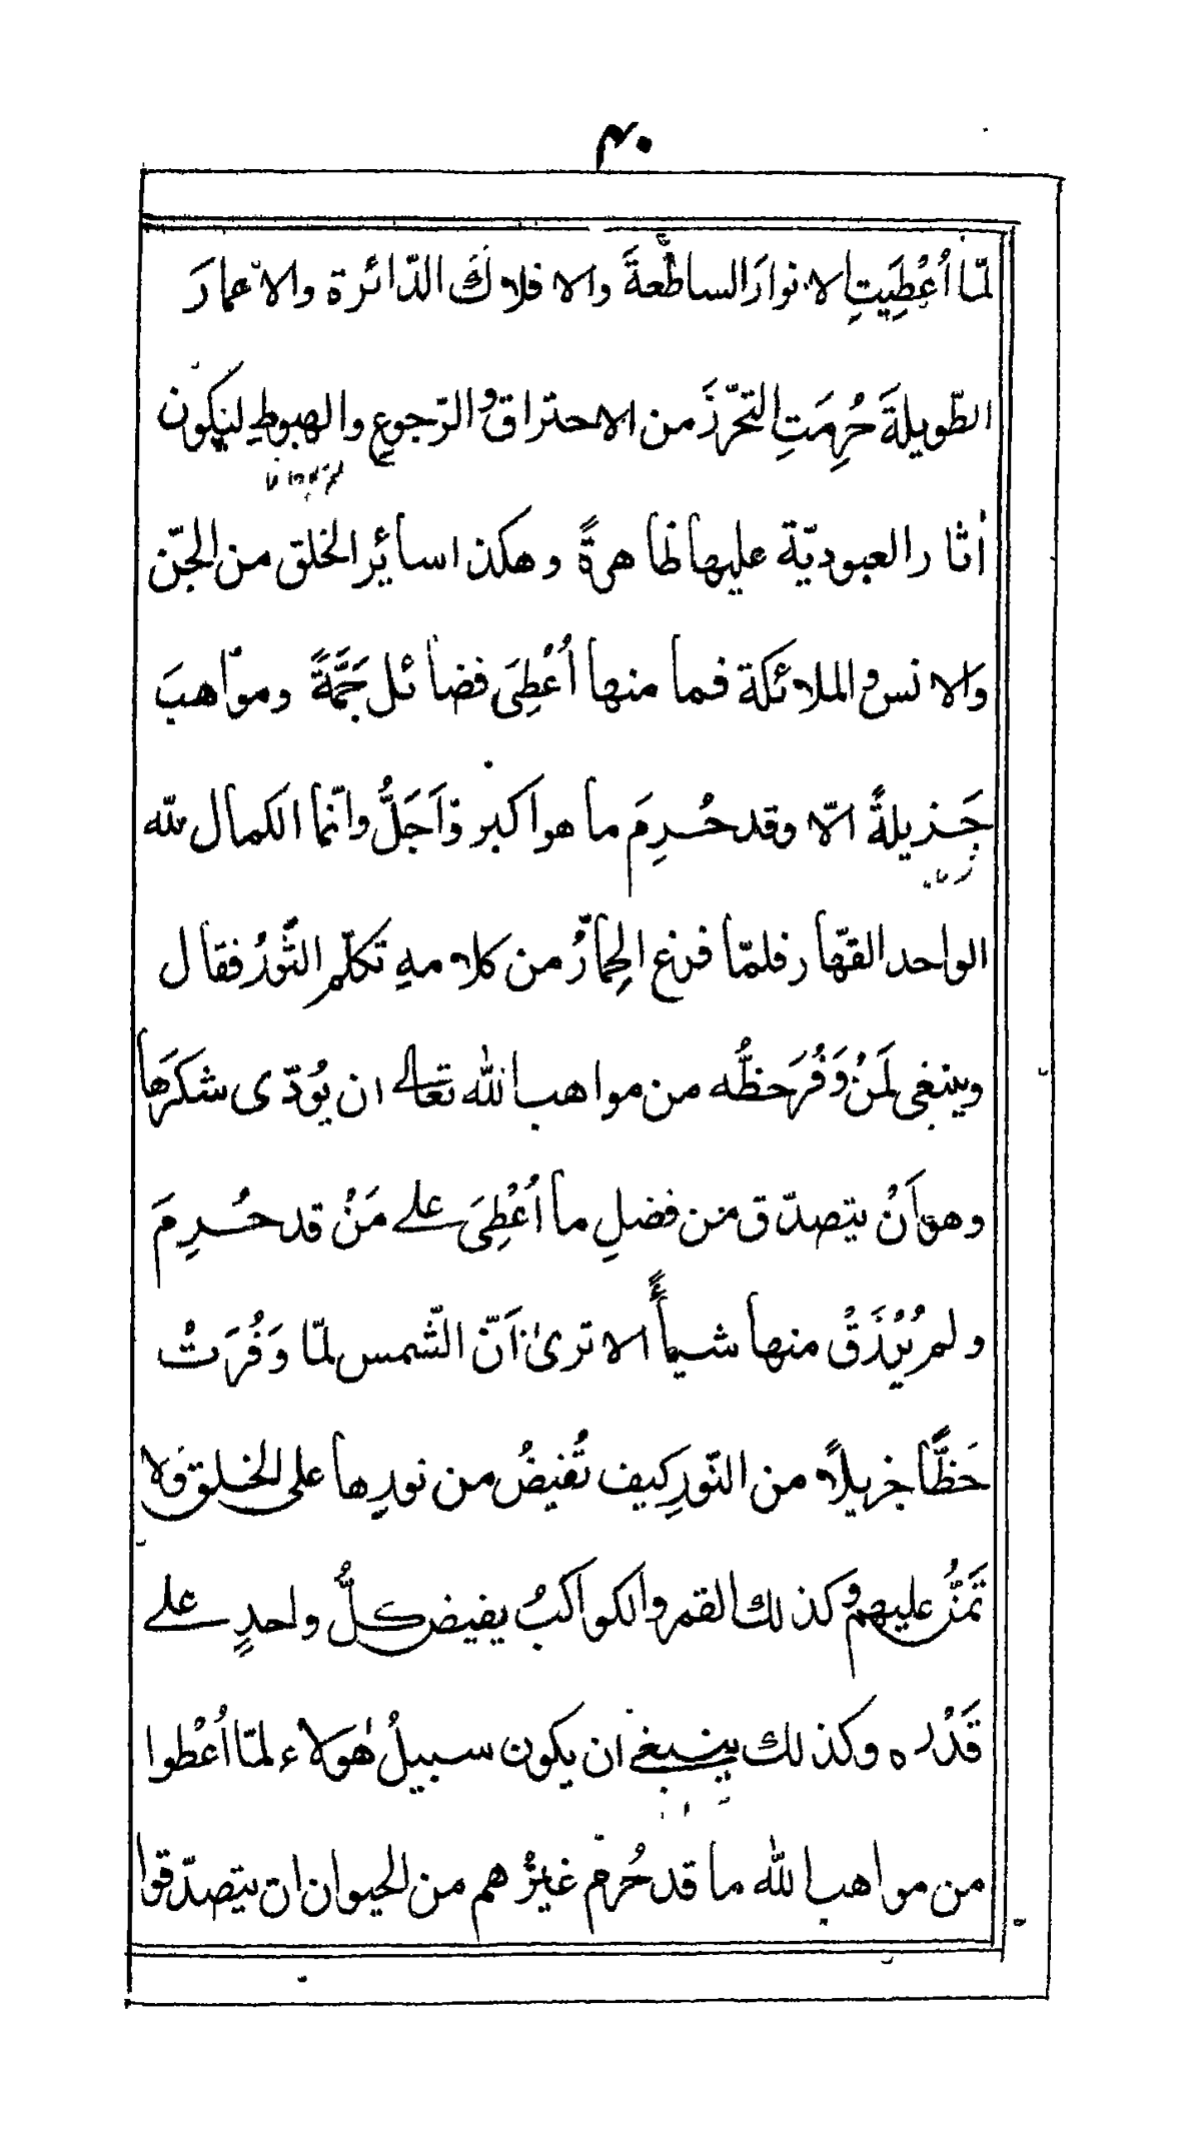 ۴۰
لمّا اُعْطِيَتِ الانوارَ الساطعةَ والافلاكَ الدّائرة والاعمارَ
الطّويلةَ حُرِمَتِ التحرّزَ من الاحتراق والرّجوعِ والهبوطِ ليكون
اٰثار العبوديّة عليها ظاهرةً وهكذا سائر الخلق من الجنّ
والانس والملائكة فما منها اُعْطِىَ فضائل جَمَّةً ومواهبَ
جَزيلةً الّا وقد حُرِمَ ما هو اكبر وَاَجَلُّ وانّما الكمال للّه
الواحد القهّار فلمّا فرغ الحِمَارُ من كلامهِ تَكلّم الثَّورُ فقال
وينبغى لَمَنْ وَفُرَ حظُّه من مواهب الله تعالے ان يُؤدّى شكرَها
وهو اَنْ يتصدّق من فضلِ ما اُعْطِىَ علے مَنْ قد حُرِمَ
ولم يُرْزَقْ منها شيأً الا ترىٰ اَنّ الشّمس لمّا وَفُرَتْ
حَظًّا جزيلاً من النّورِ كيف تُفيضُ من نورِها على الخلق ولا
تَمُنُّ عليهم وكذلك القمر والكواكبُ يفيض كلُّ واحدٍ علے
قَدْره وكذلك ينبغے ان يكون سبيلُ هٰؤلاء لمّا اُعْطوا
من مواهب الله ما قد حُرِمَ غيرُهم من الحيوان ان يتصدّقوا